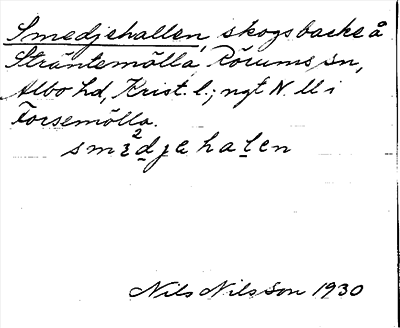 Smedjehallen, skogsbacke å
Sträntemölla, Rörums sn,
Albo hd, Krist. l.; ngt N ll i
Forsemölla.
smɛ²djehalen
Nils Nilsson 1930